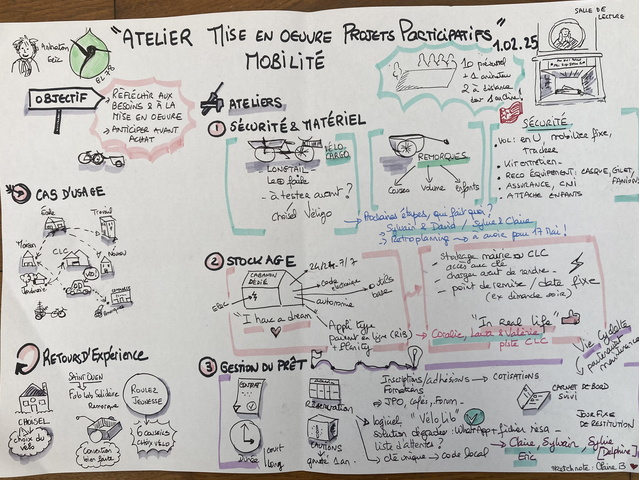 "ATELIER MISE EN OEUVRE PROJETS PARTICIPATIFS"
MOBILITÉ
1.02.25
SALLE DE
LECTURE
Animation
Eric
EL 78
10 présentiel
+ 1 animateur
2 à distance
OBJECTIF
RÉFLÉCHIR AUX
BESOINS & À LA
MISE EN OEUVRE
ANTICIPER AVANT
ACHAT
ATELIERS
1 SÉCURITÉ & MATÉRIEL
LONGTAIL
VÉLO
CARGO
à tester avant ?
Choisel Véligo
REMORQUES
courses
volume
enfants
SÉCURITÉ
VOL : en U mobilier fixe,
traceur
Kit entretien
RECO ÉQUIPEMENT : CASQUE, GILET,
ASSURANCE, CNI
ATTACHE ENFANTS
Prochaines étapes, qui fait quoi ?
Sylvain & David / Sylvie & Claire
Rétroplanning → à avoir pour 17 Mai !
CAS D'USAGE
École
Travail
Maison
CLC
2 STOCKAGE
CABANON
DÉDIÉ
24h/24 7j/7
code
autonomie
outils
base
ELEC
"I have a dream"
Appli type
Stockage mairie ou CLC
accès aux clés
charger avant de rendre
point de remise / date fixe
(ex dimanche soir)
"In Real Life"
Coralie, Laura & Valérie
piste CLC
Vie Cyclette
partenariat
maintenance
RETOURS D'EXPÉRIENCE
SAINT OUEN
Fab Lab Solidaire
Remorque
ROULEZ
JEUNESSE
CHOISEL
choix du
vélo
Convention
bien faite
6 CONSEILS
CHOIX VÉLO
3 GESTION DU PRÊT
CONTRAT
DURÉE
court
long
RÉSERVATION
CAUTIONS
Inscriptions/adhésions → COTISATIONS
Formations
JPO, cafés, Forum
logiciel "Vélo Lib"
solution dégradée : WhatsApp + fichier résa
liste d'attente ?
clé unique → code local
CARNET DE BORD
SUIVI
JOUR FIXE
DE RESTITUTION
Claire, Sylvain, Sylvie
[Delphine]
Eric
sketchnote : Claire B